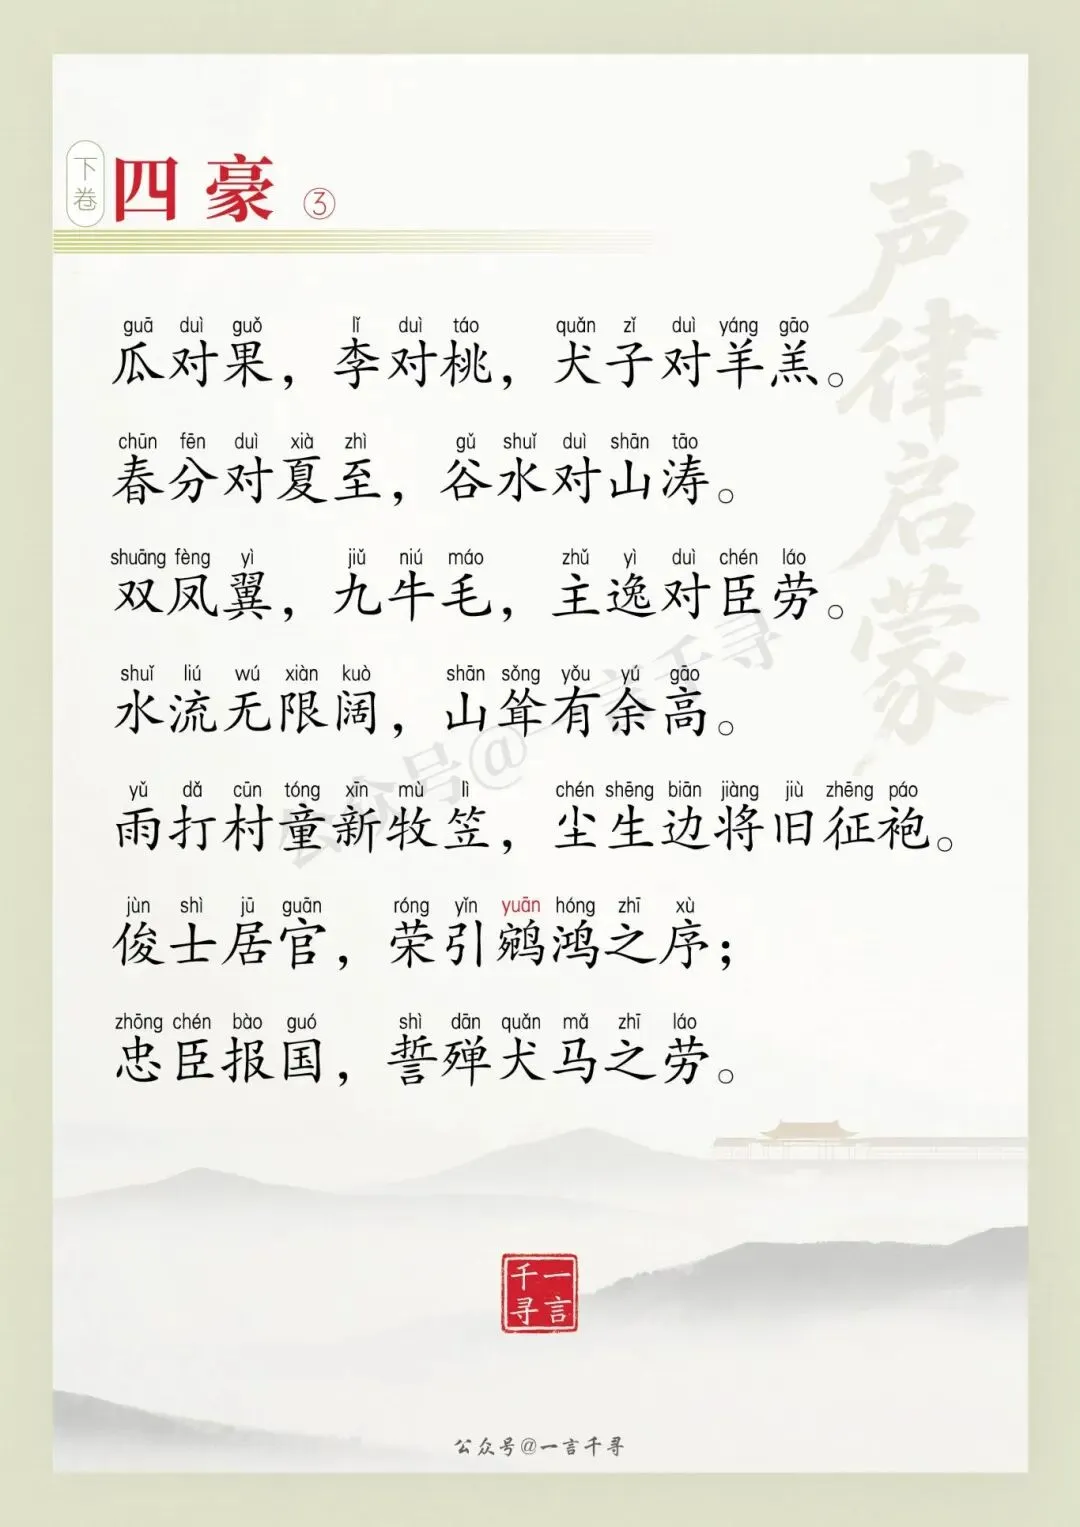 下卷
四豪 ③
声律启蒙
guā duì guǒ lǐ duì táo quǎn zǐ duì yáng gāo
瓜对果，李对桃，犬子对羊羔。
chūn fēn duì xià zhì gǔ shuǐ duì shān tāo
春分对夏至，谷水对山涛。
shuāng fèng yì jiǔ niú máo zhǔ yì duì chén láo
双凤翼，九牛毛，主逸对臣劳。
shuǐ liú wú xiàn kuò shān sǒng yǒu yú gāo
水流无限阔，山耸有余高。
yǔ dǎ cūn tóng xīn mù lì chén shēng biān jiàng jiù zhēng páo
雨打村童新牧笠，尘生边将旧征袍。
jùn shì jū guān róng yǐn yuān hóng zhī xù
俊士居官，荣引鹓鸿之序；
zhōng chén bào guó shì dān quǎn mǎ zhī láo
忠臣报国，誓殚犬马之劳。
公众号@一言千寻
一言千寻
公众号@一言千寻